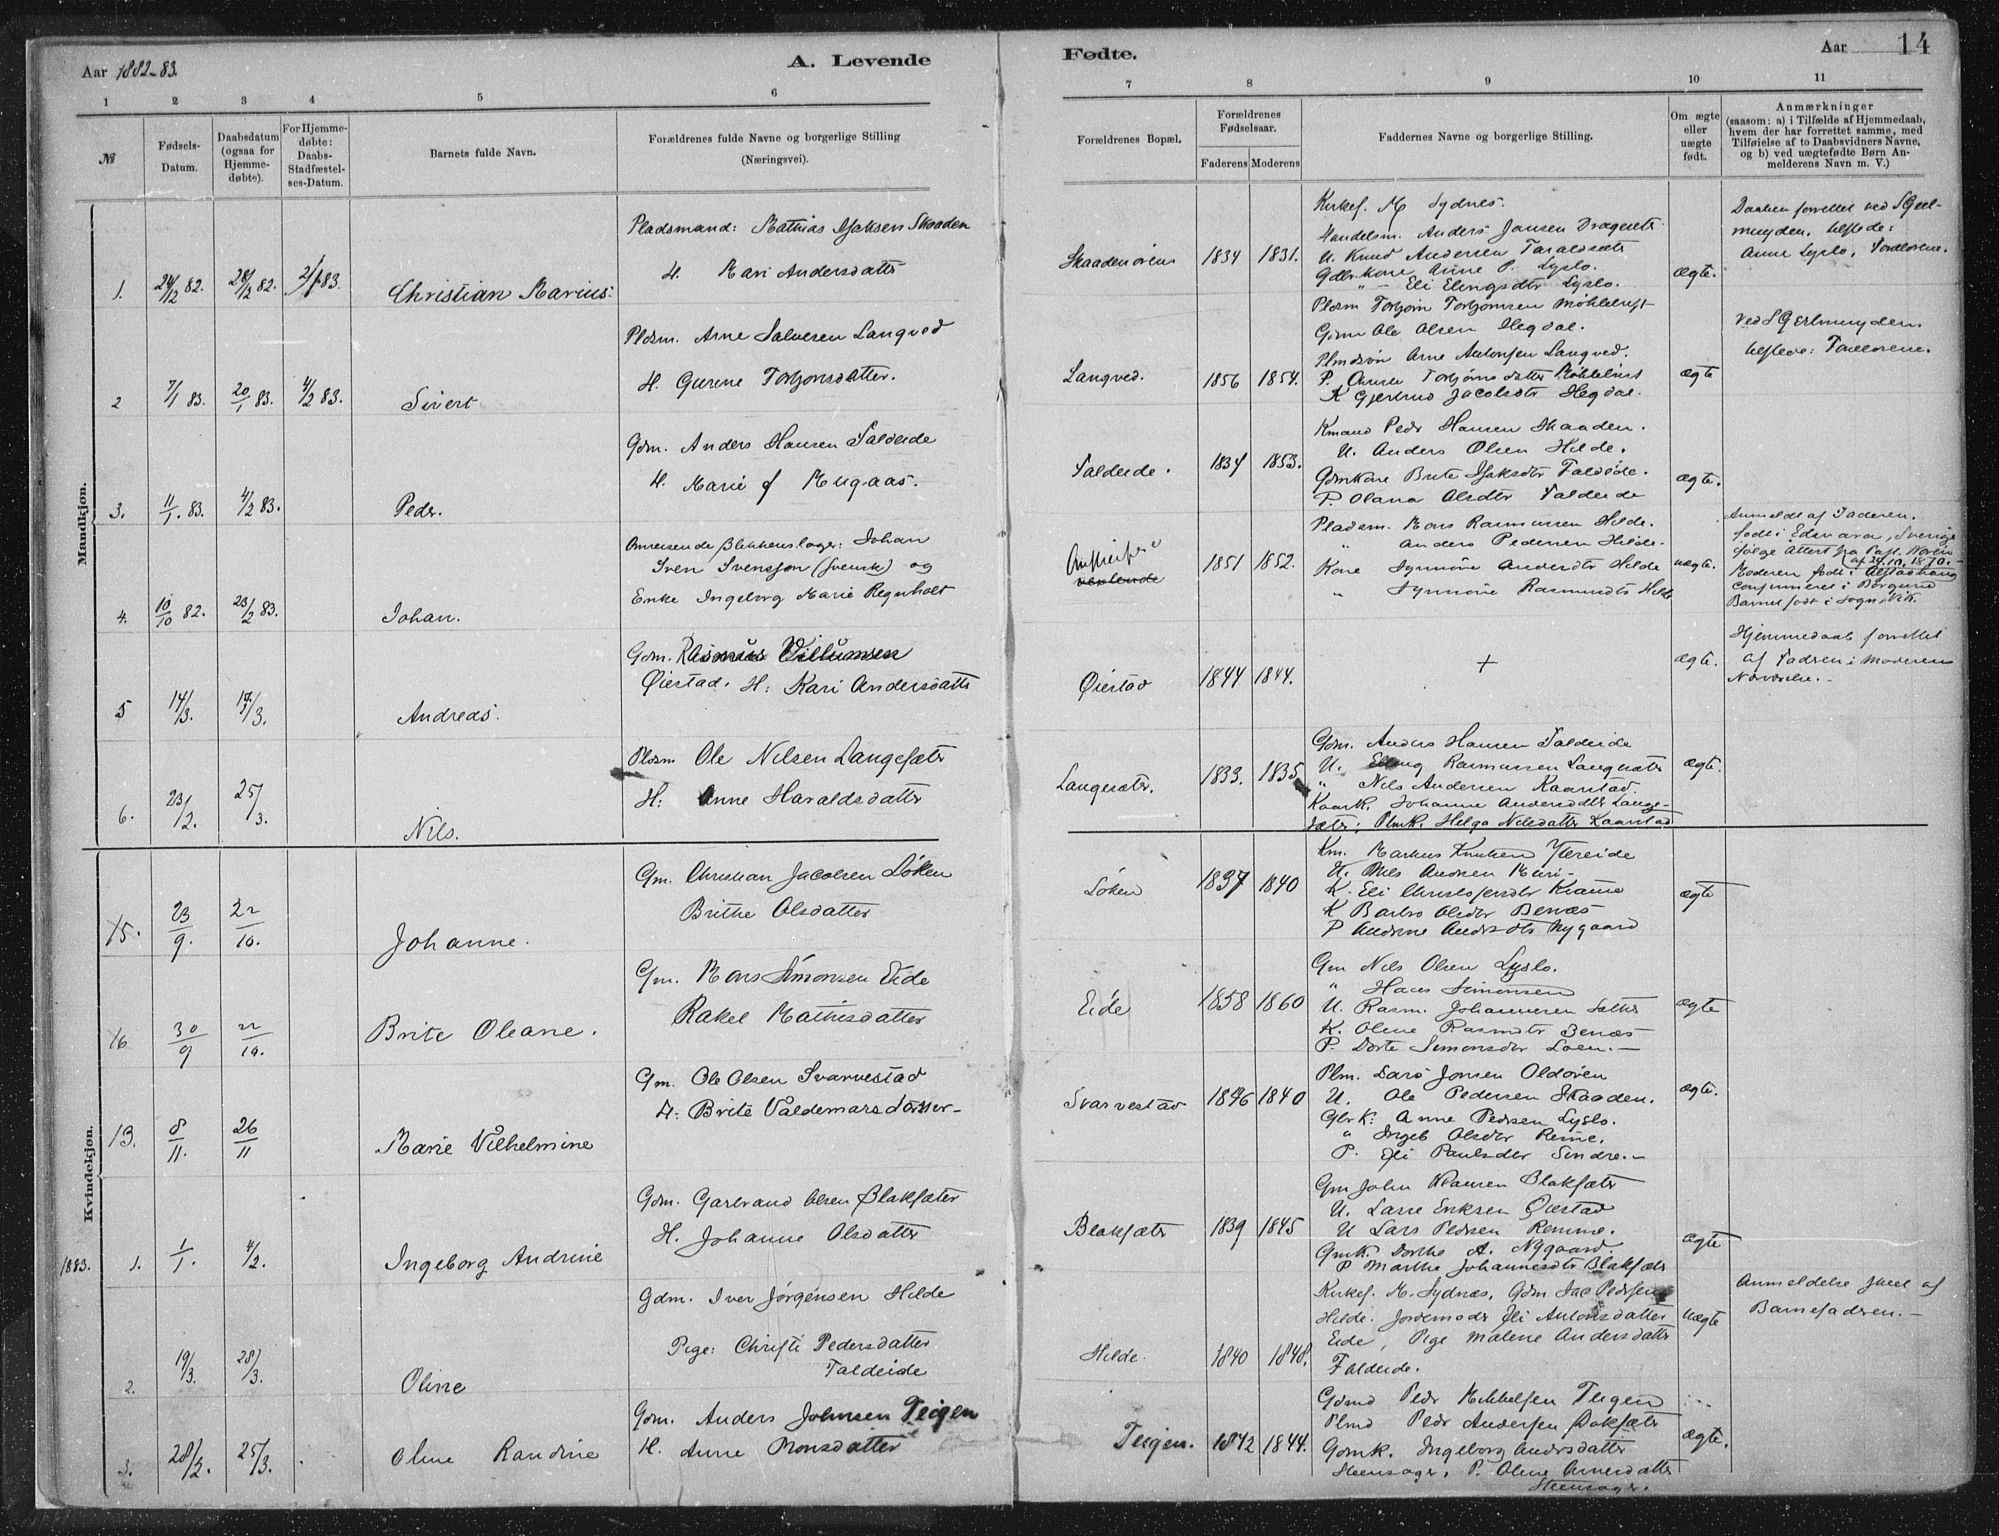 Aar 1882-83.
A. Levende
Fødte.
Aar 14
1 2 3 4 5 6 7 8 9 10 11
№
Fødsels-
Datum.
Daabsdatum
(ogsaa for
Hjemme-
døbte).
For Hjemme-
døbte:
Daabs-
Stadfæstel-
ses-Datum.
Barnets fulde Navn.
Forældrenes fulde Navne og borgerlige Stilling
(Næringsvei).
Forældrenes Bopæl.
Forældrenes
Fødselsaar.
Faderens Moderens
Faddernes Navne og borgerlige Stilling.
Om ægte
eller
uægte
født.
Anmærkninger
(saasom: a) i Tilfælde af Hjemmedaab,
hvem der har forrettet samme, med
Tilføielse af to Daabsvidners Navne,
og b) ved uægtefødte Børn An-
melderens Navn m. V.)
Mandkjøn.
1. 24/12 82. 28/12 82. 2/1 83. Christian Marius.
Pladsmand: Mathias Isaksen Skaaden
H. Mari Andersdatter
Skaadenøren 1834 1831.
Kirkes. M Sydnes.
Handelsm. Anders Jansen
U. Knud Andersen Taraldsæter
Gdbr.kone Anne P. Lyslo.
" - Eli Elingsdtr Lyslo.
ægte.
Daaben forrettet ved
tilstede:
Anne Lyslo,
2 7/1 83. 20/1 83. 4/2 83. Sivert
Pldsm. Arne Salvesen Langved
H. Gurine Torbjonsdatter.
Langved. 1856 1854.
Pldsm Torbjørn Torbjørnsen
Gdm Ole Olsen Hegdal.
Arne Antonsen Langved.
K Gjertrud Jacobsdtr Hegdal.
ægte
tilstede:
3. 11/1 83. 4/2 83. Peder.
Gdm. Anders Hansen Faldeide
H. Marie
Faldeide. 1834 1853.
Kmand Pedr Hansen Skaaden.
U. Anders Olsen Hilde.
Gdmkone Brite Isaksdtr Faldeide.
P. Olana Olsdtr Faldeide
ægte.
4. 10/10 82. 23/2 83. Johan.
Omreisende Blikkenslager: Johan
Sven Svensson (svensk) og
Enke Ingeborg Marie Regnholt
1851 1852.
Pladsm. Mons Rasmussen Hilde.
" Anders Pedersen Hilde.
Kone Synnøve Andersdtr Hilde
" Synnøve Rasmusdtr Hilde
uægte.
Anmeldt af Faderen.
født i Edsvara, Sverige
Moderen født i Alstadhaug
confirmeret i Borgund
Barnet født i Sogn, Vik.
5 14/3. 17/3. Andreas.
Gdm. Rasmus Villumsen
Øiestad. H: Kari Andersdatter
Øiestad 1844 1844.
+
ægte.
Hjemmedaab forrettet
af Fadren i Moderens
Nærværelse. -
6. 23/2. 25/3. Nils.
Pldsm Ole Nilsen Langesæter
H: Anne Haraldsdatter
Langesæter. 1833. 1835.
Gdm. Anders Hansen Faldeide
U. Elling Rasmussen Langesæter
" Nils Andersen Kaarstad.
Kaark. Johanne Andersdtr Lange-
sæter; Plmk. Helga Nilsdatter Kaarstad
ægte.
Kvindekjøn.
15. 23/9. 22/10. Johanne.
Gm. Christian Jacobsen Løken
Brithe Olsdatter
Løken 1837 1840
Km. Markus Knutsen Ytreide
U. Nils Andsen Muri -
K. Eli Christofersdtr Kvame
K Barbro Olsdtr Benæs
P Andrine Andrsdtr Nygaard
ægte
16 30/9 22/10. Brite Oleane.
Gm. Mons Simonsen Eide
Rakel Mathisdatter
Eide 1858 1860
Gm Nils Olsen Lyslo.
" Hans Simonsen
U. Rasm. Johannesen Sæter
K. Oline Rasmdtr Benæs
P. Dorte Simonsdtr Loen. -
ægte
13. 8/11. 26/11 Marie Vilhelmine
Gm. Ole Olsen Svarvestad
H: Brite Valdemarsdotter -
Svarvestad 1846 1840
Plm. Lars Jonsen Oldøren
U. Ole Pedersen Skaaden.
Gbrk: Anne Pedsen Lyslo.
" Ingeb Olsdtr Reme.
P. Eli Paulsdtr Sindre. -
ægte.
1883. 1. 1/1. 4/2. Ingeborg Andrine
Gdm. Gartrand Olsen Blakset
H. Johanne Olsdatter
Blaksæter 1839 1845
Gm John Klausen Blaksæter
U. Lasse Eriksen Øiestad
U Lars Pedsen Remme.
Gmk. Dorthe A. Nygaard.
P Marthe Johannesdtr Blaksæter
ægte
2. 19/3. 28/3. Oline
Gdm. Iver Jørgensen Hilde
Pige: Christi Pedersdatter
Faldeide
Hilde. 1840 1848.
Kirkes. M. Sydnæs, Gdm Jac Pedersen
Hilde. Jordemodr Eli Antonsdatter
Eide, Pige Malene Andersdatter
Faldeide.
uægte
Anmeldelse skeet af
Barnefadren. -
3. 28/2. 25/3. Oline Randine
Gdm. Anders Johnsen Teigen
H. Anne Monsdatter
Teigen. 1842 1844.
Gdmd Pedr Mikkelsen Teigen
Plmd Pedr Andersen Baksæter
Gdmk. Ingeborg Andersdatter
Steensager, P. Oline Arnesdatter
Steensager.
ægte.